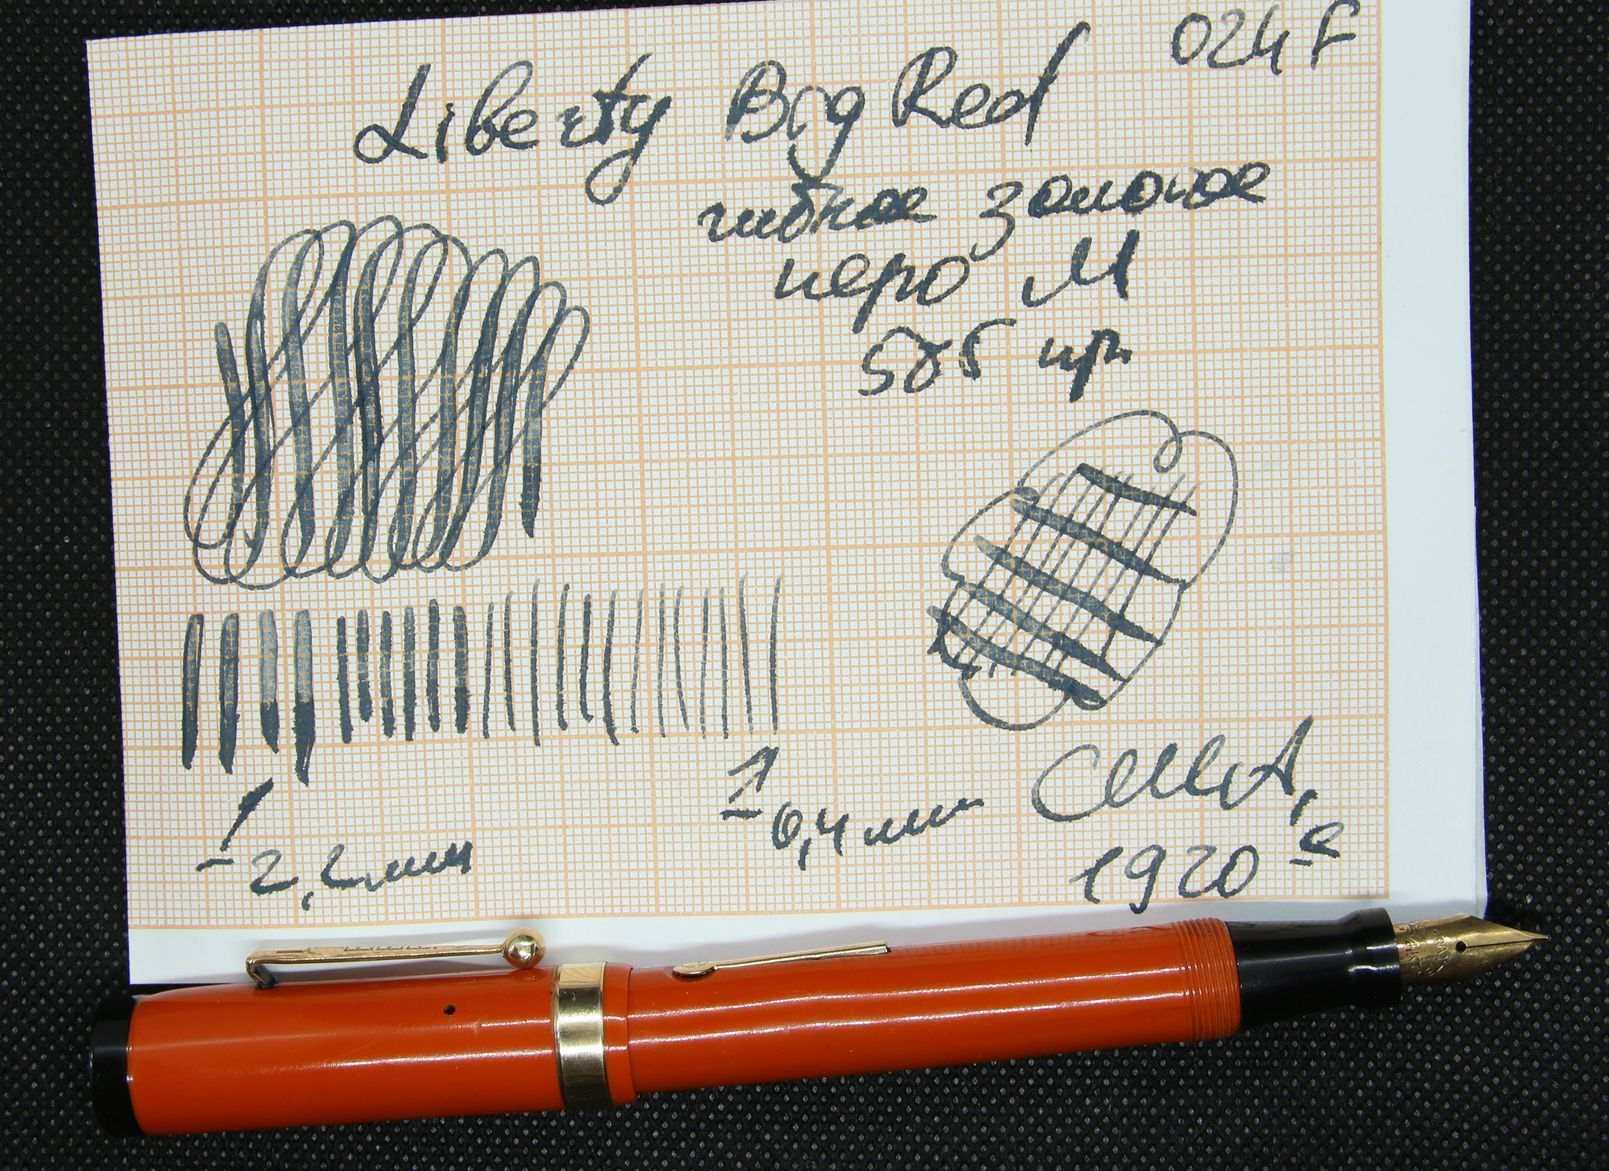 024 F
Liberty Big Red
гибкое золотое
перо М
585 пр.
2,2 мм
0,4 мм
США,
1920-е